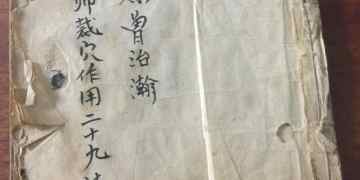 曾治瀚
师裁穴作用二十九法